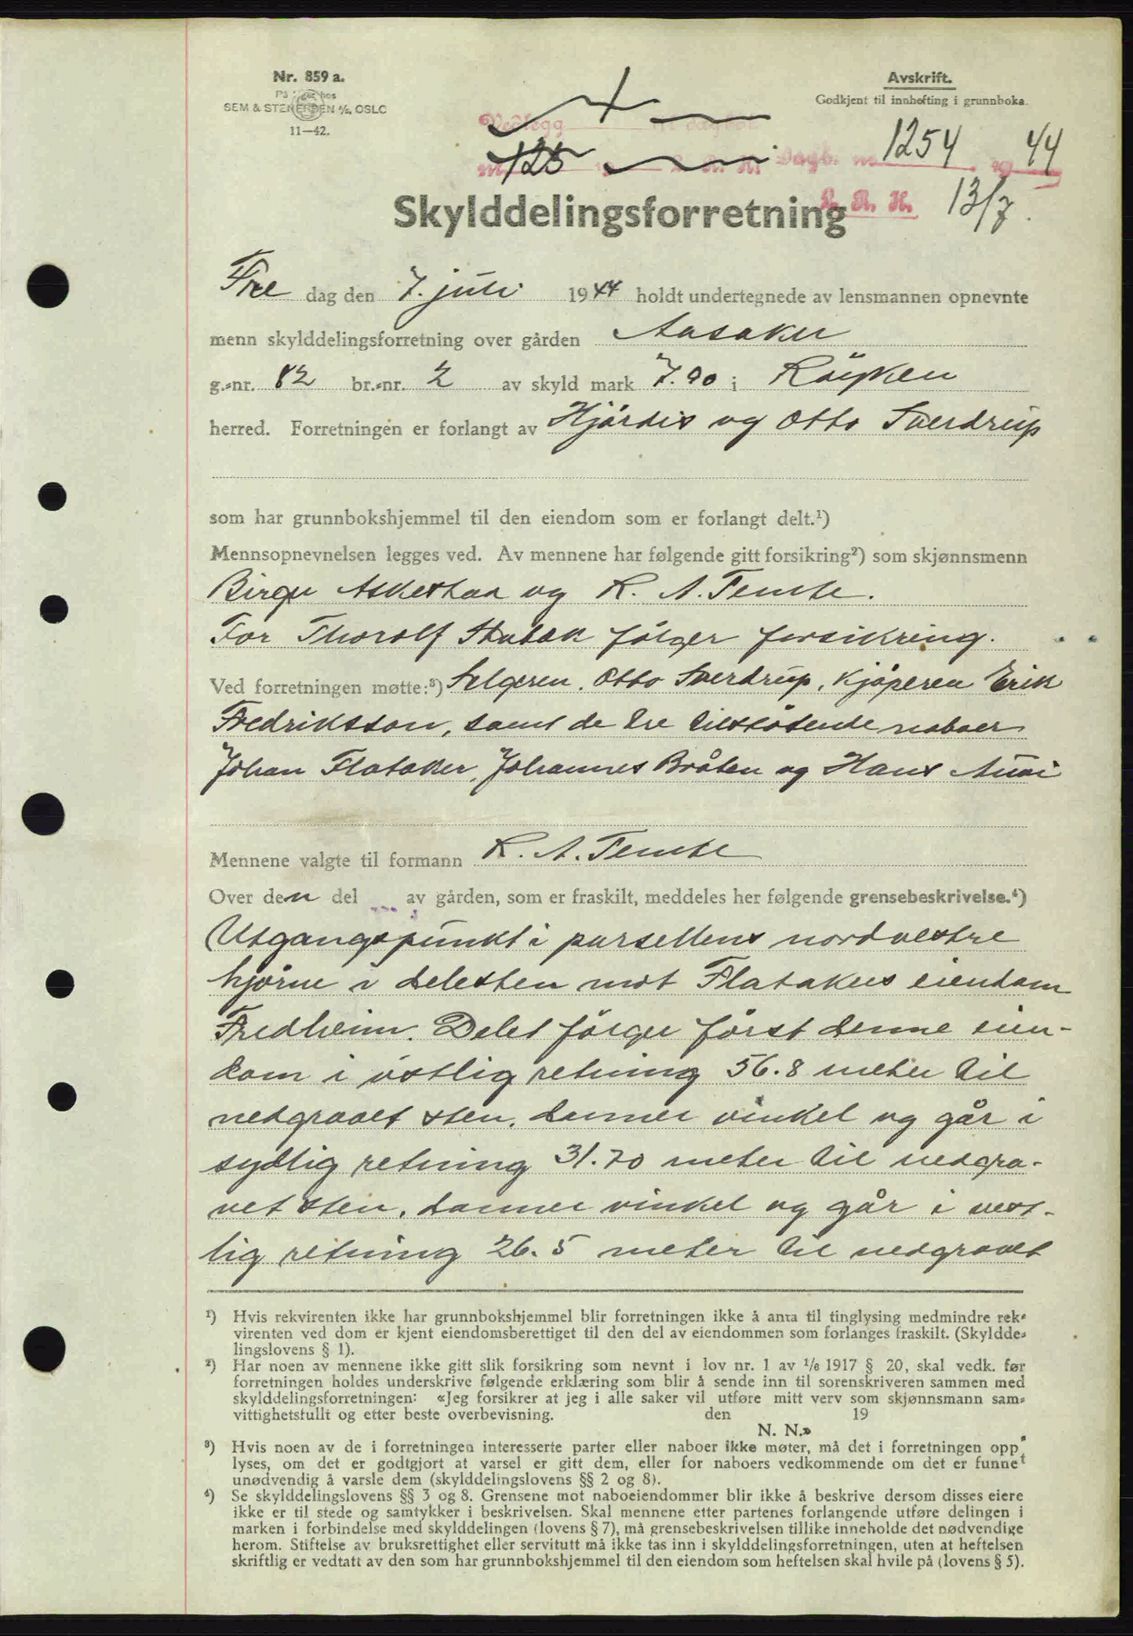 Nr. 859 a.
SEM & STENERSEN A/S, OSLO
11—42.
Avskrift.
Godkjent til innhefting i grunnboka.
Vedlegg
125
Dagb. nr. 1254 19 44
13/7
Skylddelingsforretning
Fre dag den 7. juli 1944 holdt undertegnede av lensmannen opnevnte
menn skylddelingsforretning over gården Aasaker
g.-nr. 82 br.-nr. 2 av skyld mark 7.90 i Röyken
herred. Forretningen er forlangt av Hjördis og Otto Sverdrup
som har grunnbokshjemmel til den eiendom som er forlangt delt.¹)
Mennsopnevnelsen legges ved. Av mennene har følgende gitt forsikring²) som skjønnsmenn
Birger Askestad og K. A. Temte.
For Thorolf Stabæk følger forsikring.
Ved forretningen møtte:³) Selgeren, Otto Sverdrup, Kjöperen Erik
Fredriksson, samt de tre tilstötende naboer
Johan Flataker, Johannes Bråten og Hans
Mennene valgte til formann K. A. Temte
Over den del av gården, som er fraskilt, meddeles her følgende grensebeskrivelse.⁴)
Utgangspunkt i parsellens nordvestre
hjörne i delesten mot Flatakers eiendom
Fredheim. Delet fölger först denne eien-
dom i östlig retning 56.8 meter til
nedgravet sten, danner vinkel og går i
sydlig retning 31.70 meter til nedgra-
vet sten, danner vinkel og går i vest-
lig retning 26.5 meter til nedgravet
¹) Hvis rekvirenten ikke har grunnbokshjemmel blir forretningen ikke å anta til tinglysing medmindre rek-
virenten ved dom er kjent eiendomsberettiget til den del av eiendommen som forlanges fraskilt. (Skyldde-
lingslovens § 1).
²) Har noen av mennene ikke gitt slik forsikring som nevnt i lov nr. 1 av 1/6 1917 § 20, skal vedk. før
forretningen holdes underskrive følgende erklæring som blir å sende inn til sorenskriveren sammen med
skylddelingsforretningen: «Jeg forsikrer at jeg i alle saker vil utføre mitt verv som skjønnsmann sam-
vittighetsfullt og etter beste overbevisning. den 19
N. N.»
³) Hvis noen av de i forretningen interesserte parter eller naboer ikke møter, må det i forretningen opp
lyses, om det er godtgjort at varsel er gitt dem, eller for naboers vedkommende om det er funnet
unødvendig å varsle dem (skylddelingslovens §§ 2 og 8).
⁴) Se skylddelingslovens §§ 3 og 8. Grensene mot naboeiendommer blir ikke å beskrive dersom disses eiere
ikke er til stede og samtykker i beskrivelsen. Skal mennene etter partenes forlangende utføre delingen i
marken i forbindelse med skylddelingen (lovens § 7), må grensebeskrivelsen tillike inneholde det nødvendige
herom. Stiftelse av bruksrettighet eller servitutt må ikke tas inn i skylddelingsforretningen, uten at heftelsen
skriftlig er vedtatt av den som har grunnbokshjemmel til den eiendom som heftelsen skal hvile på (lovens § 5).